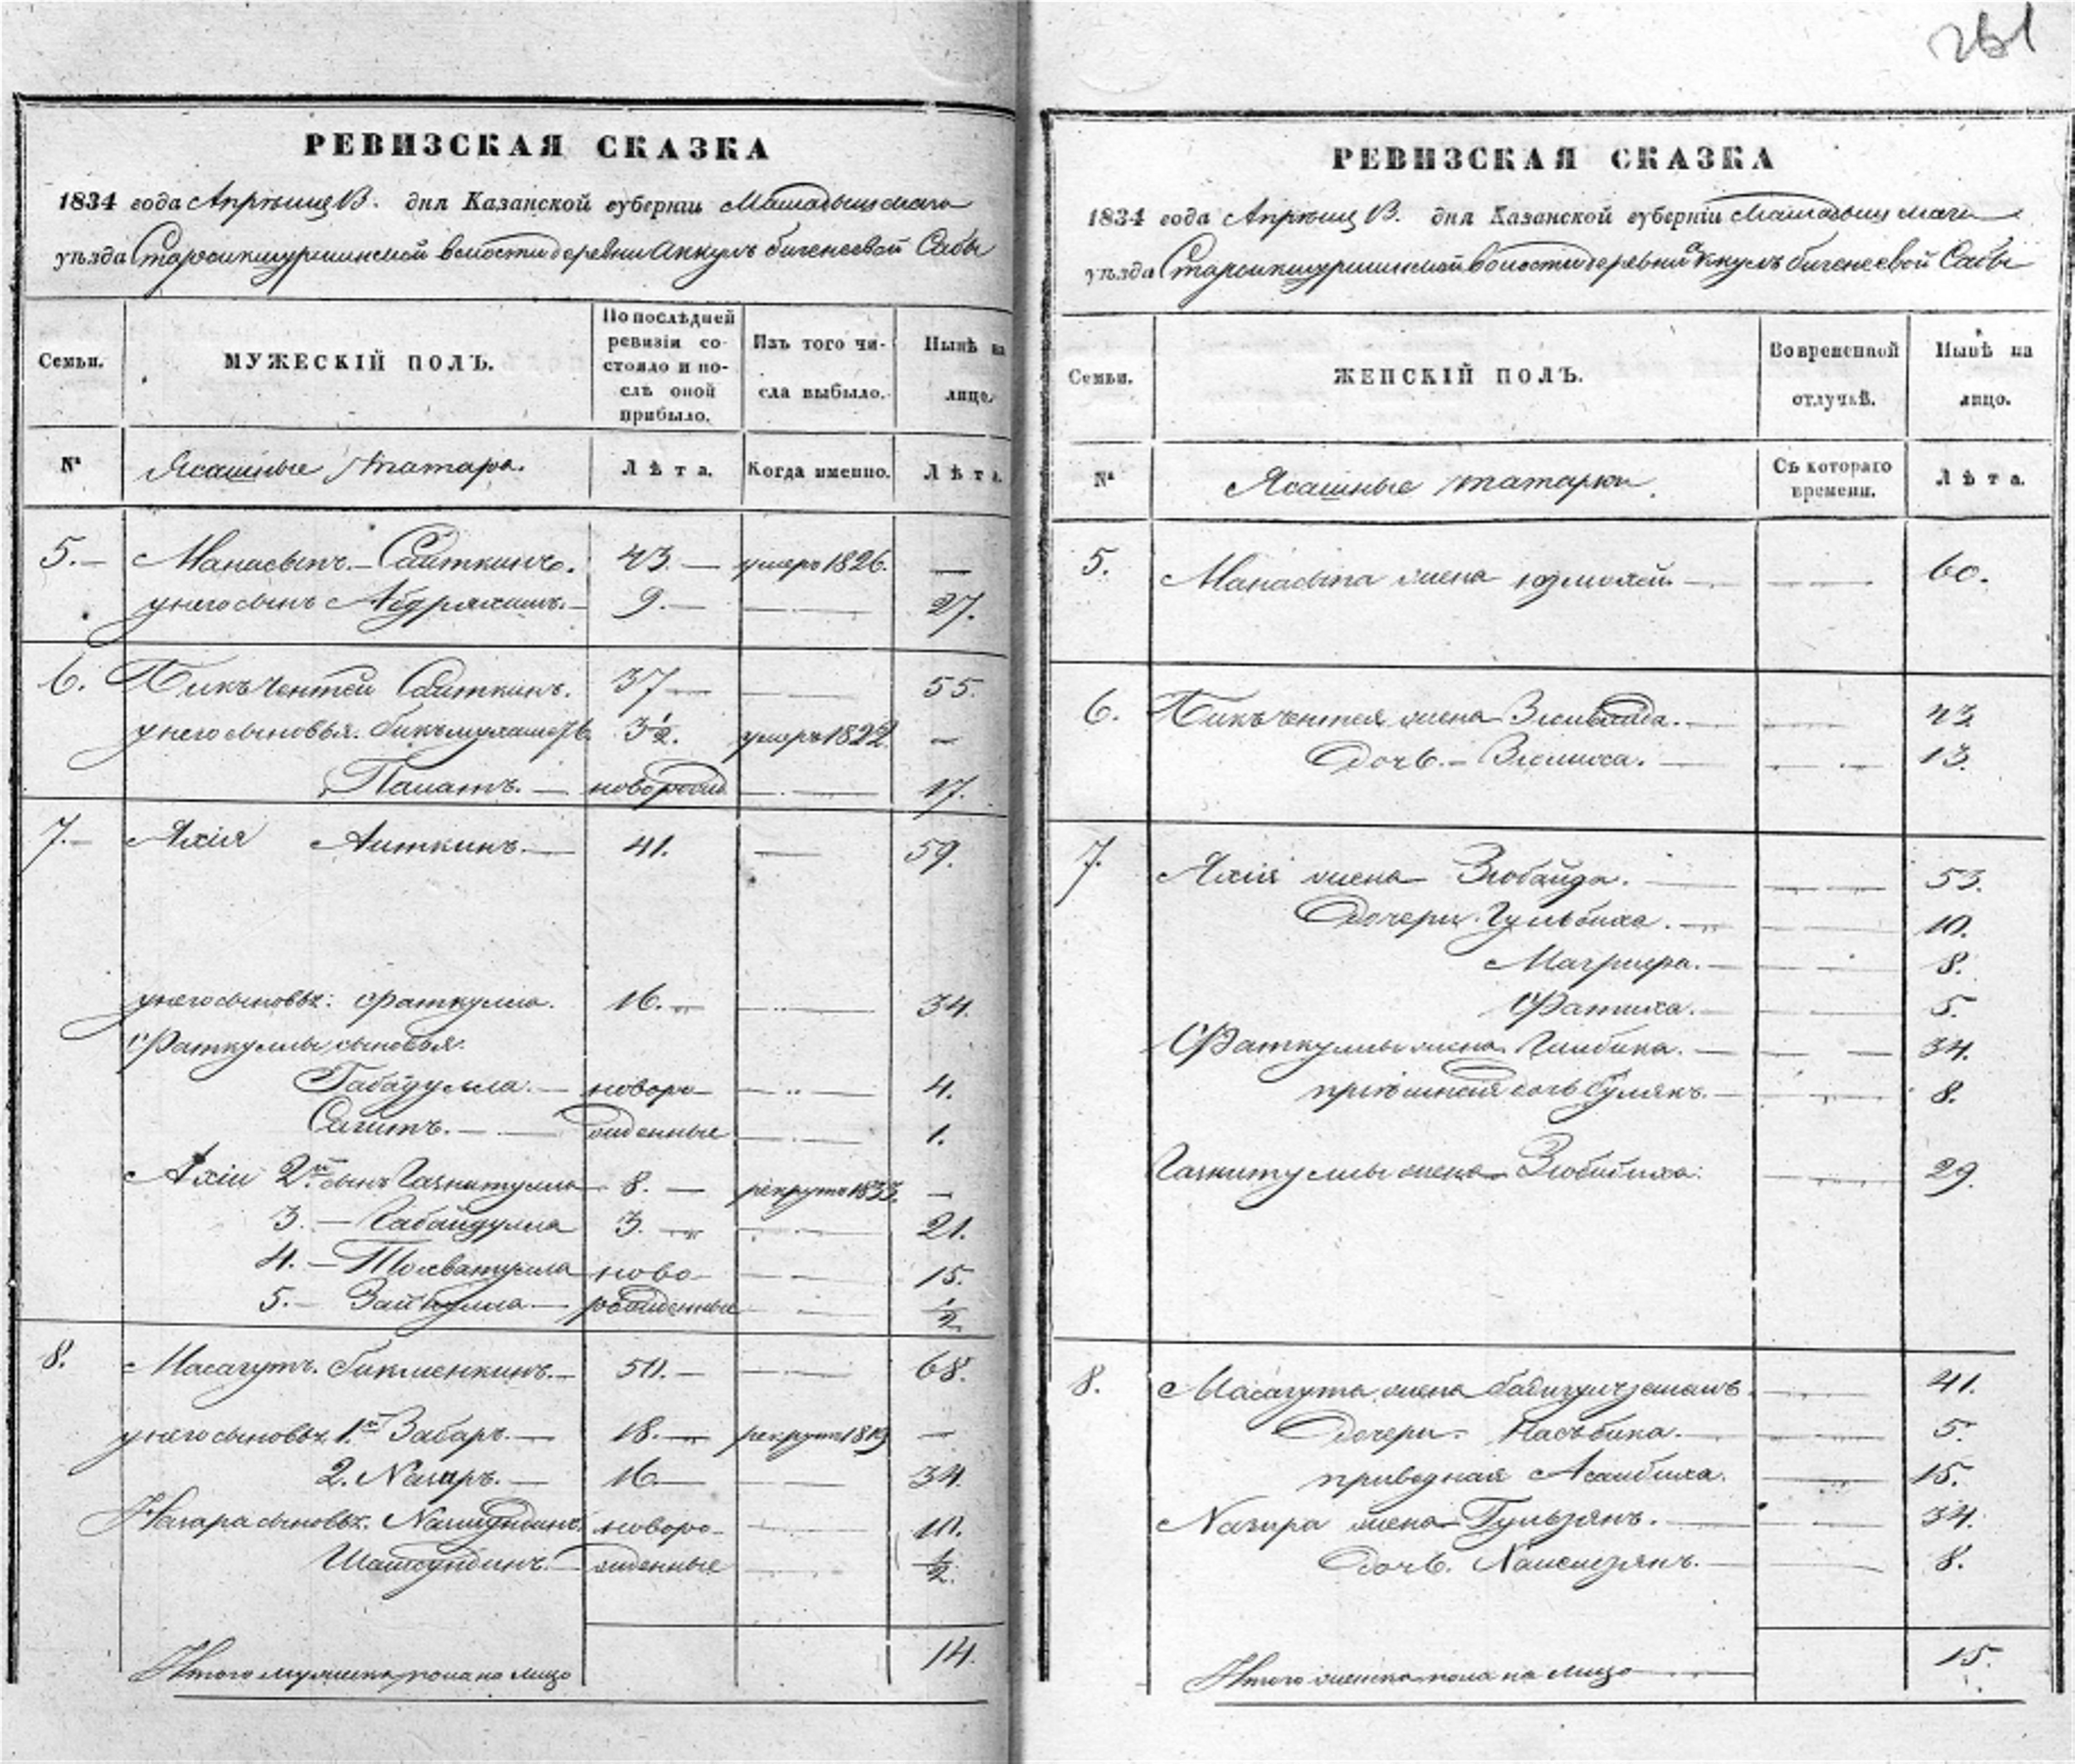 261
РЕВИЗСКАЯ СКАЗКА
1834 года Апрѣля дня Казанской губерніи Мамадышскаго
уѣзда волости деревни Аккулъ бигенеевой Сабы
Семьи.
МУЖЕСКІЙ ПОЛЪ.
По послѣдней ревизіи состояло и послѣ оной прибыло.
Изъ того числа выбыло.
Нынѣ на лицо.
№
Ясашные татара.
Лѣта.
Когда именно.
Лѣта.
5. Манасыпъ Саиткинъ. 43. умеръ 1826. —
у него сынъ Абдряхимъ. 9. — 27.
6. Бикъчентей Саиткинъ. 37 — 55.
у него сыновья. 3½. умеръ 1822. —
Палатъ. — новорожд — 17.
7. Яхія Аиткинъ. — 41. — 59.
у него сыновья: Фаткулла. 16. — 34.
Фаткуллы сыновья.
Габдулла. — новоро — 4.
Сагитъ. — жденные — 1.
Яхіи 2й сынъ 8. — рекрутъ 1833. —
3. — Габайдулла 3. — 21.
4. — Тохватулла ново — 15.
5. — Зайнулла — рожденные — ½
8. Масагутъ Бикменкинъ. — 50. — 68.
у него сыновья 1й Забаръ. — 18. — рекрутъ —
2. Нагаръ. — 16. — 34.
Нагара сыновья. новоро — 10.
жденные — ½.
Итого мужеска пола на лицо 14.
РЕВИЗСКАЯ СКАЗКА
1834 года Апрѣля дня Казанской губерніи Мамадышскаго
уѣзда волости деревни Аккулъ бигенеевой Сабы
Семьи.
ЖЕНСКІЙ ПОЛЪ.
Во временной отлучкѣ.
Нынѣ на лицо.
№
Ясашные татарки.
Съ котораго времени.
Лѣта.
5. Манасыпа жена — 60.
6. Бикъчентея жена — 43
Дочь. — — 13.
7. Яхія жена Зюбайда. — 53.
Дочери. Гульбика. — 10.
Магрифа. — 8.
Фатиха. — 5.
Фаткуллы жена — 34.
дочь — 8.
жена — 29.
8. Масагута жена — 41.
Дочери. Насъбика. — 5.
приводная — 15.
Нагара жена Гульзянъ. — 34.
Дочь. — 8.
Итого женска пола на лицо — 15.